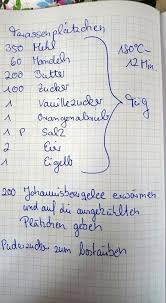 Terrassenplätzchen
350 Mehl
60 Mandeln
200 Butter
100 Zucker
1 Vanillezucker
1 Orangenabrieb
1 P Salz
2 Eier
1 Eigelb
} Teig
180°C
12 Min
200 Johannisbeergelee erwärmen
und auf die ausgekühlten
Plätzchen geben
Puderzucker zum bestäuben